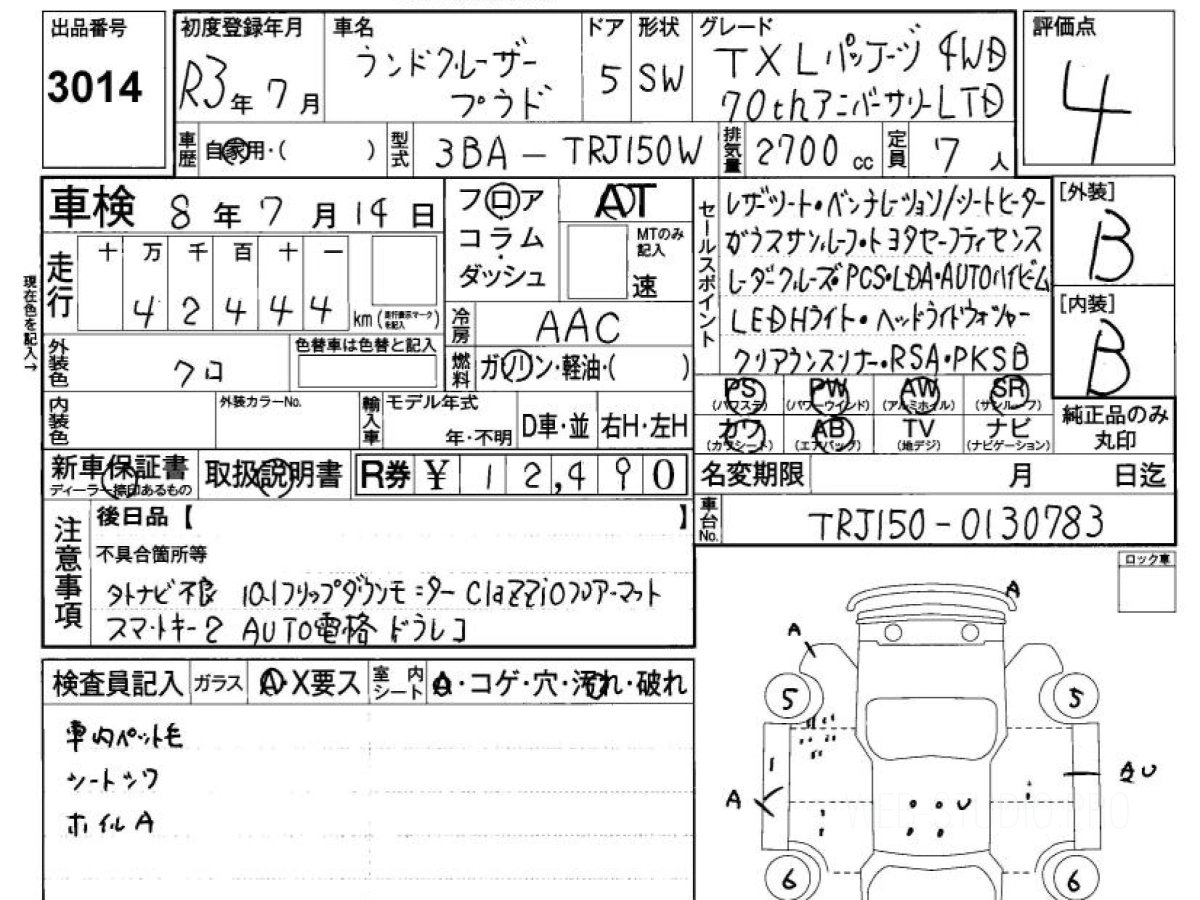 出品番号
3014
初度登録年月
R3年7月
車名
ランドクルーザー
プラド
ドア
5
形状
SW
グレード
TXLパッケージ 4WD
70thアニバーサリーLTD
評価点
4
車歴
自家用・(　　)
型式
3BA-TRJ150W
排気量
2700cc
定員
7人
車検 8年7月14日
フロア
コラム
ダッシュ
AT
MTのみ
記入
速
セールスポイント
レザーシート・ベンチレーション/シートヒーター
ガラスサンルーフ・トヨタセーフティセンス
レーダークルーズ・PCS・LDA・AUTOハイビーム
LEDHライト・ヘッドライトウォシャー
クリアランスソナー・RSA・PKSB
[外装]
B
[内装]
B
現在色を記入→
走行
十 万 千 百 十 一
4 2 4 4 4
km(走行表示マークを記入)
冷房
AAC
燃料
ガソリン・軽油・(　　)
外装色
クロ
色替車は色替と記入
内装色
外装カラーNo.
輸入車
モデル年式
年・不明
D車・並
右H・左H
PS
(パワステ)
PW
(パワーウインド)
AW
(アルミホイル)
SR
(サンルーフ)
カワ
(カワシート)
AB
(エアバッグ)
TV
(地デジ)
ナビ
(ナビゲーション)
純正品のみ
丸印
新車保証書
ディーラー捺印あるもの
取扱説明書
R券 ¥ 12,490
名変期限　月　日迄
注意事項
後日品【　】
不具合箇所等
外ナビ不良 10.1フリップダウンモニター Clazzioフロアーマット
スマートキー2 AUTO電格 ドラレコ
車台No.
TRJ150-0130783
ロック車
検査員記入
ガラス
A・X要ス
室内
シート
A・コゲ・穴・汚れ・破れ
車内ペット毛
シートシワ
ホイルA
A
A
5
5
A
AU
U
6
6
WEB-STUDIO.PRO